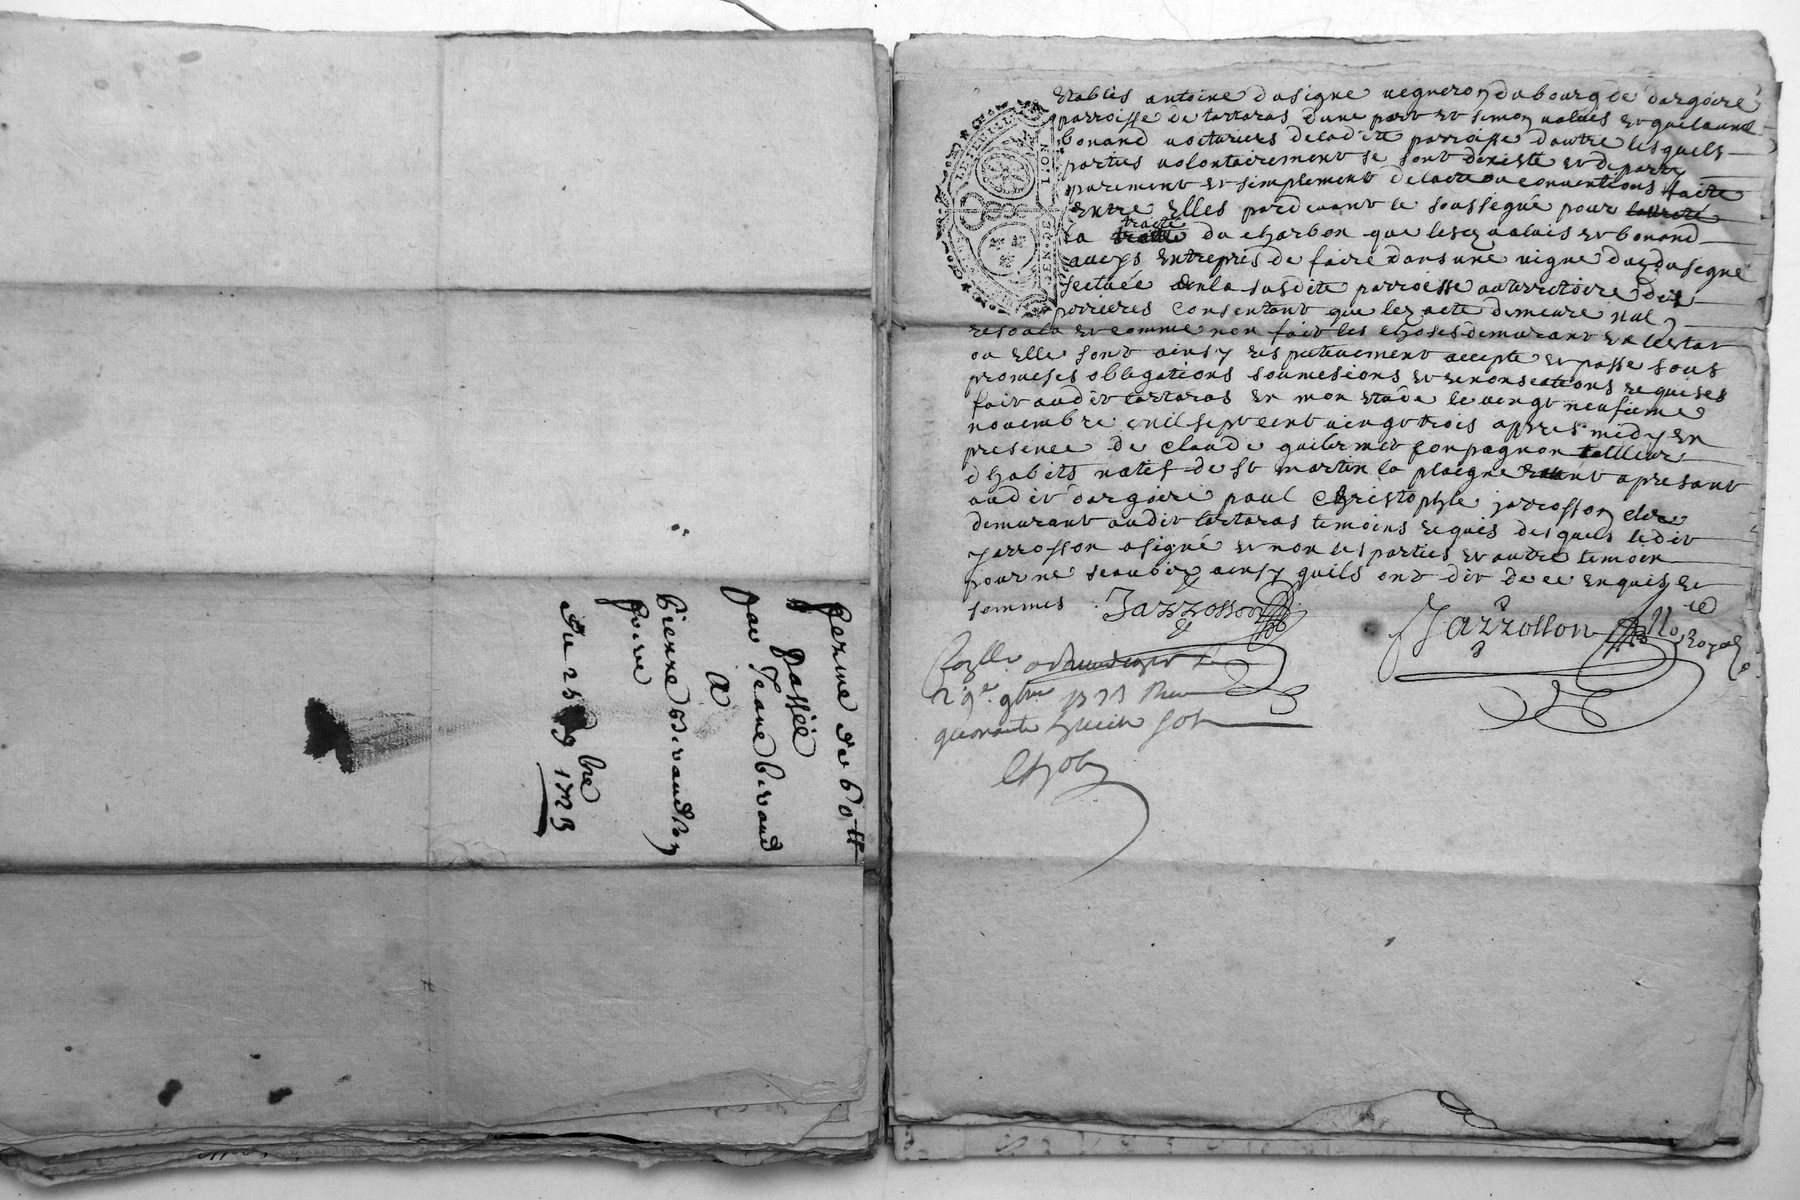 ferme de 60 tt
passée
par Jeane Giraud
A
pierre
frere
Du 25 9 bre 1723
GEN. DE LION
Etablis antoine dusigne vegneron du bourg de dargoire
parroisse de tartaras dune part et simon valais et guilaume
bonand voituriers deladitte parroisse dautre lesquels
parties volontairement se sont deziste et departy
purement et simplement delacte ou conventions faite
Entre Elles pardevant le soussigné pour
la traitte du charbon que lesd valais et bonand
avoys Entrepris de faire dans une vigne dud dusigne
scituée enla susdite parroisse auterritoire des
porrieres consentant que led acte demeure nul
resoulu et comme non fait les choses demurant en lestat
ou Elle sont ainsy respectivement accepte et passe sous
promeses obligations soumesions et renonseations requises
fait audit tartaras en mon etude le vingt neufieme
novembre mil sept cent vingt trois apres midy en
presence de claude guilermet compagnon tallieur
dhabits natif de st martin la plaigne etant apresant
audit dargoire paul christophle jarrosson clerc
demurant audit tartaras temoins requis desquels ledit
jarrosson a signé et non les parties et autre temoin
pour ne scavoir ainsy quils ont dit de ce enquis et
semmes . Jarrosson
Jarrosson No re Royal
29e. 9bre 1723 Reçu
quarante huit sols